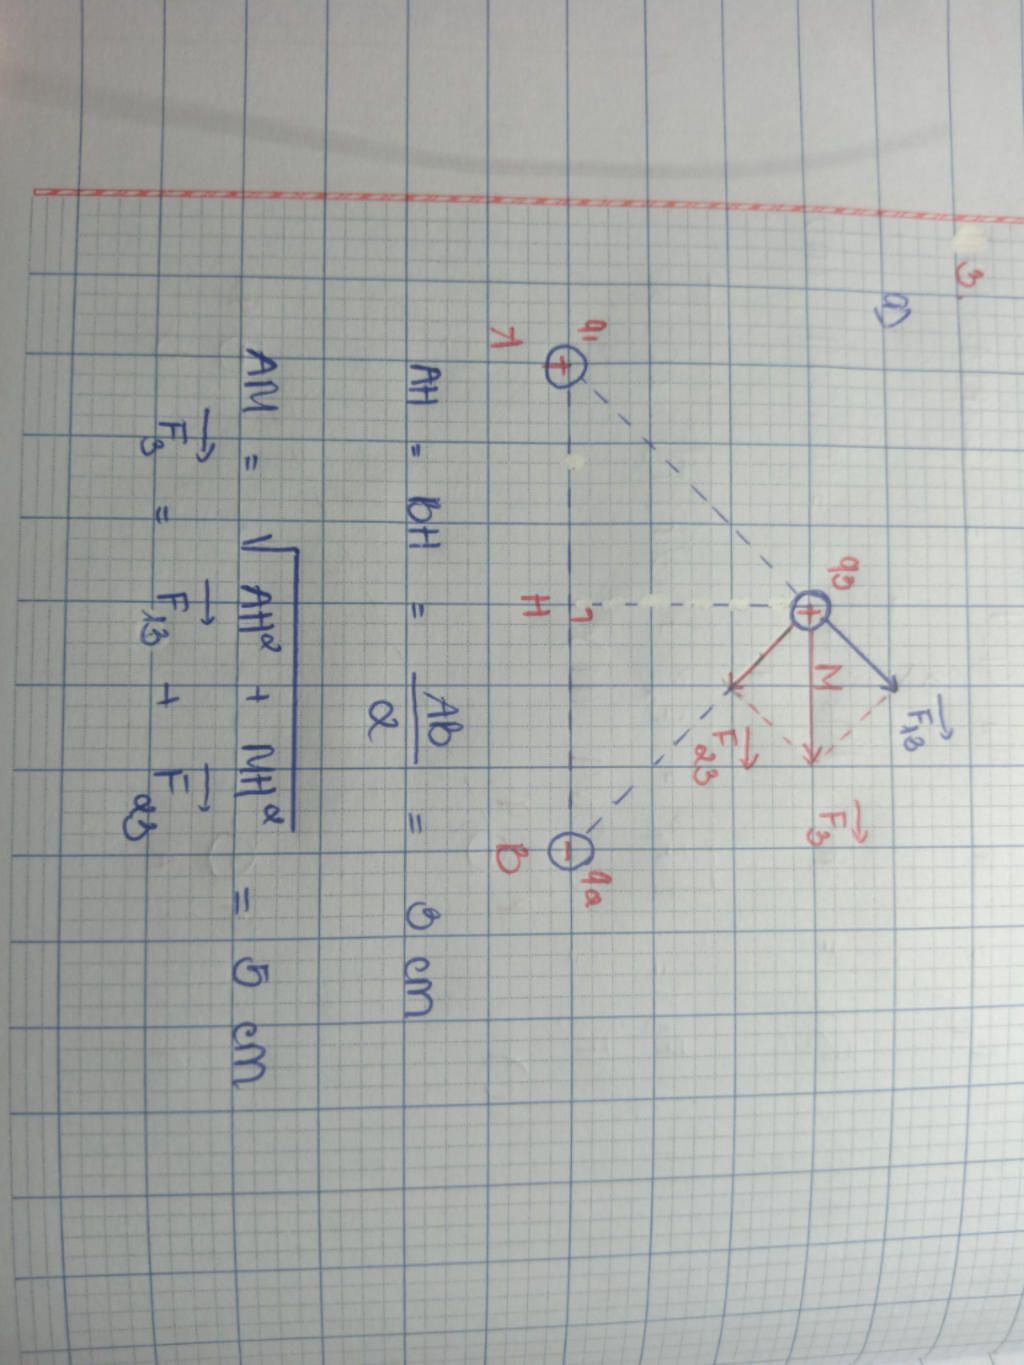 3.
a)
F₁₃
q₃
M
F₃
F₂₃
q₁
q₂
A
H
B
AH = BH = AB/2 = 3 cm
AM = √(AH² + MH²) = 5 cm
F₃ = F₁₃ + F₂₃